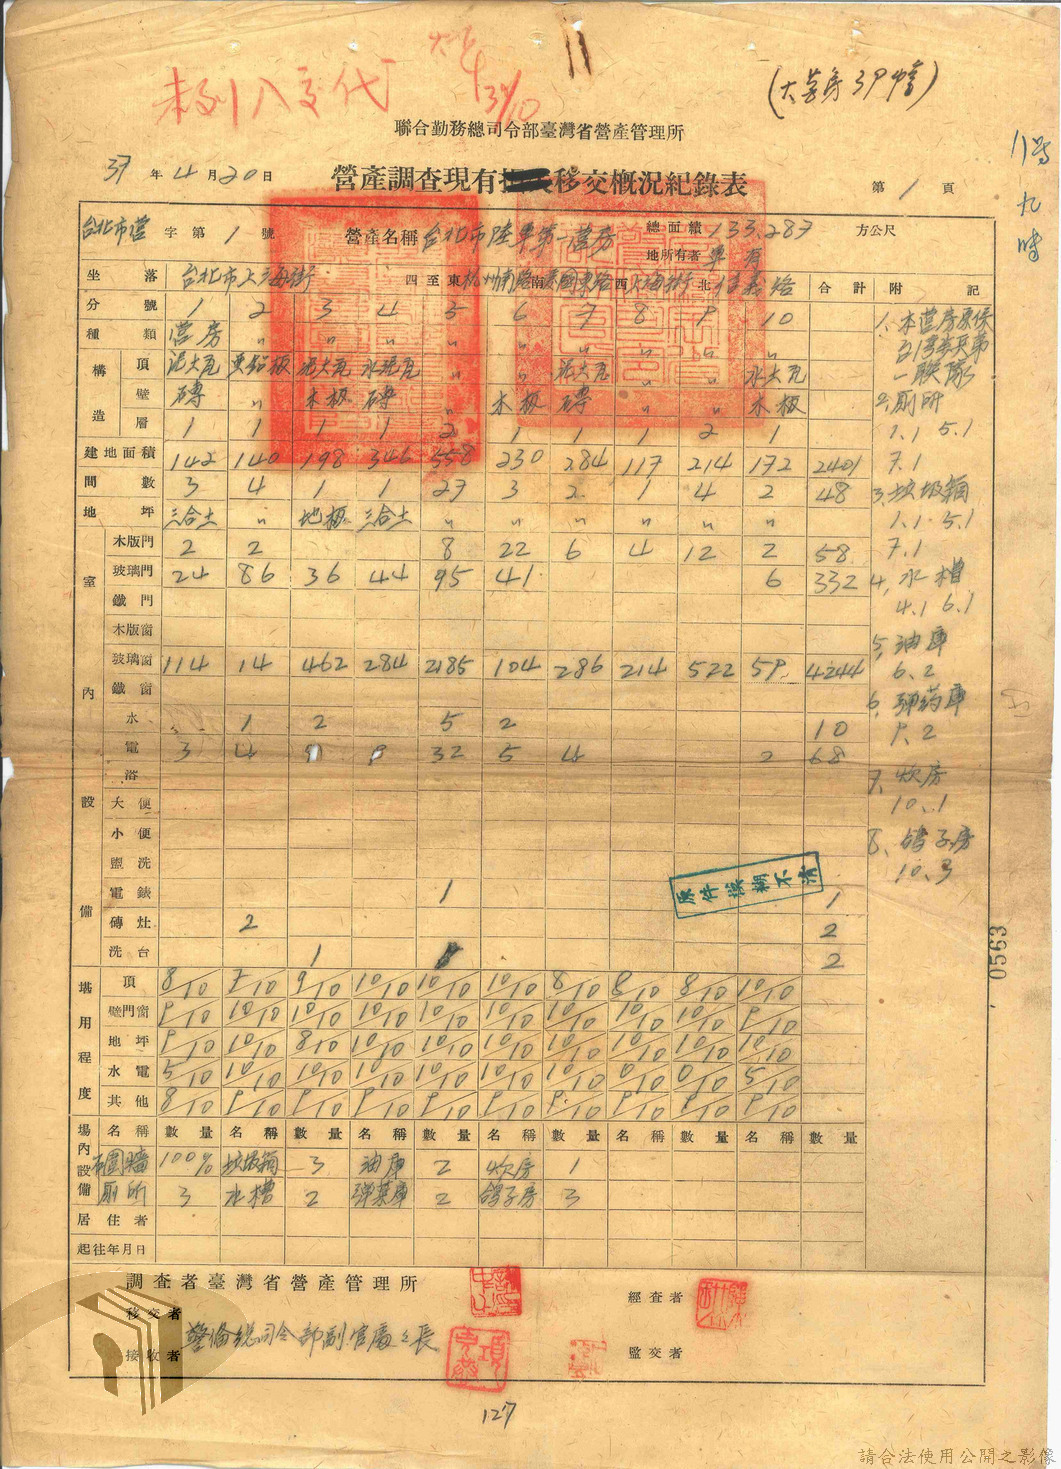 未列入交代
(大營房39幢)
11時
九時
聯合勤務總司令部臺灣省營產管理所
37年4月20日
營產調查現有移交概況紀錄表
第1頁
台北市營字第1號 營產名稱 台北市陸軍第一營房 總面積 133,287 方公尺
地所有者 軍有
坐落 台北市上海街 四至東 杭州南路 南 愛國東路 西 上海街 北 信義路 合計 附記
分號 1 2 3 4 5 6 7 8 9 10
種類 營房 〃 〃 〃 〃 〃 〃 〃 〃 〃
構造 頂 泥大瓦 亜鉛板 泥大瓦 水泥瓦 〃 〃 泥大瓦 〃 〃 水大瓦
壁 磚 〃 木板 磚 〃 木板 磚 〃 〃 木板
層 1 1 1 1 2 1 1 1 2 1
建地面積 142 140 198 346 558 230 284 117 214 172 2401
間數 3 4 1 1 27 3 2 1 4 2 48
地坪 三合土 〃 地板 三合土 〃 〃 〃 〃 〃 〃
室內設備
木版門 2 2 8 22 6 4 12 2 58
玻璃門 24 86 36 44 95 41 6 332
鐵門
木版窗
玻璃窗 114 14 462 284 2185 104 286 214 522 59 4244
鐵窗
水 1 2 5 2 10
電 3 4 9 9 32 5 4 2 68
浴
大便
小便
盥洗
電錶 1 1
磚灶 2 2
洗台 1 2
堪用程度
頂 8/10 7/10 9/10 10/10 10/10 10/10 8/10 8/10 8/10 10/10
壁門窗 9/10 10/10 10/10 10/10 10/10 10/10 10/10 10/10 10/10 9/10
地坪 9/10 10/10 8/10 10/10 10/10 10/10 10/10 10/10 10/10 10/10
水電 5/10 10/10 10/10 10/10 10/10 10/10 10/10 0/10 0/10 5/10
其他 8/10 9/10 9/10 9/10 9/10 9/10 9/10 9/10 9/10 9/10
場內設備 名稱 數量 名稱 數量 名稱 數量 名稱 數量 名稱 數量 名稱 數量
圍牆 100% 垃圾箱 3 油庫 2 炊房 1
廁所 3 水槽 2 彈藥庫 2 鴿子房 3
居住者
起往年月日
1、本營房原係
台灣步兵第
一聯隊
2、廁所
1.1 5.1
7.1
3、垃圾箱
1.1 5.1
7.1
4、水槽
4.1 6.1
5、油庫
6.2
6、彈药庫
9.2
7、炊房
10.1
8、鴿子房
10.3
原件模糊不清
0563
調查者臺灣省營產管理所 經查者
移交者
警備總司令部副官處處長
接收者 監交者
127
請合法使用公開之影像